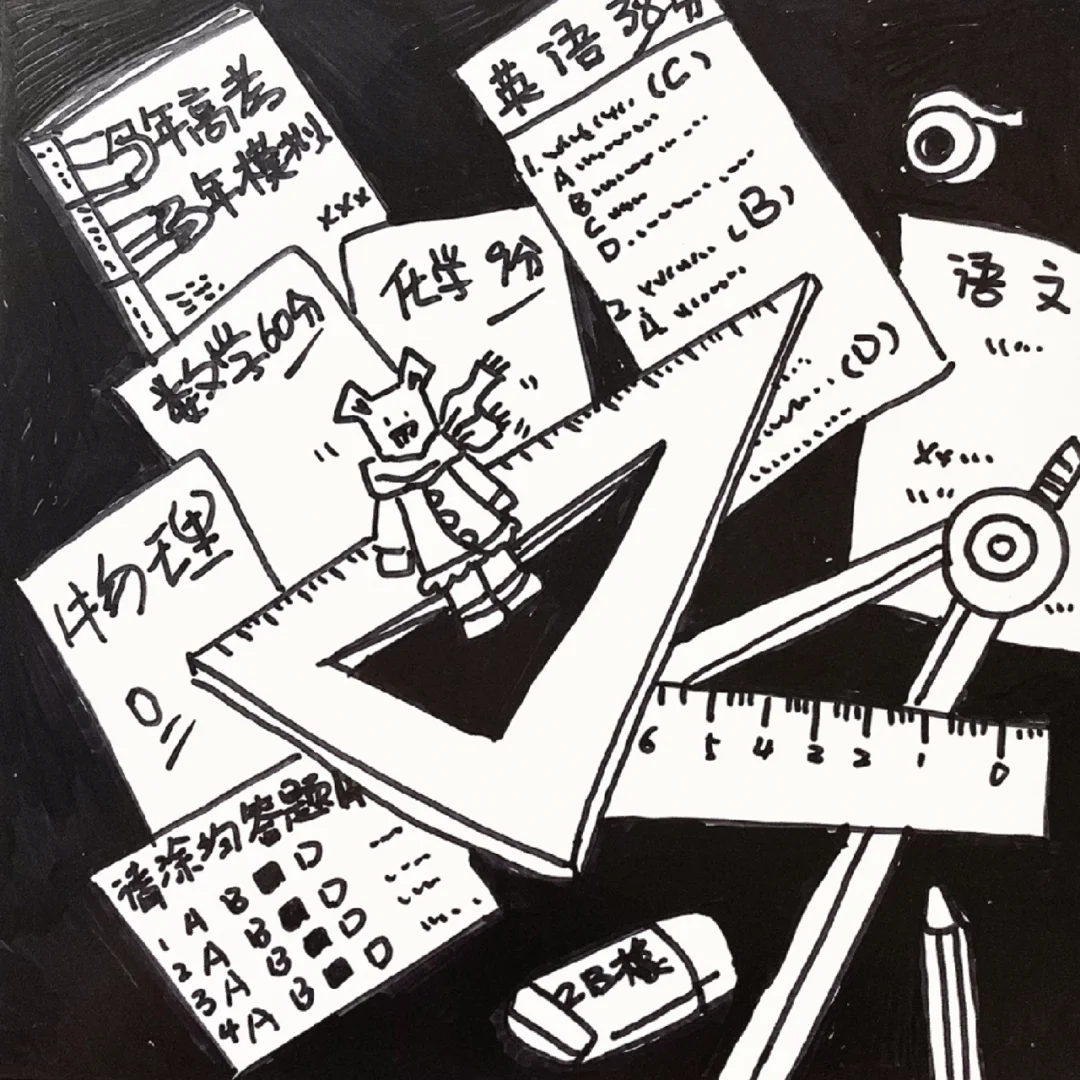 5年高考
3年模拟
xxx
英语 38分
1. (C)
A
B
C
D
2 (B)
A
(D)
化学 9分
数学60分
语文
xx
物理
0
请涂均答题
1 A B ■ D
2 A B ■ D
3 A B ■ D
4 A B ■ D
6 5 4 3 2 1 0
2B橡